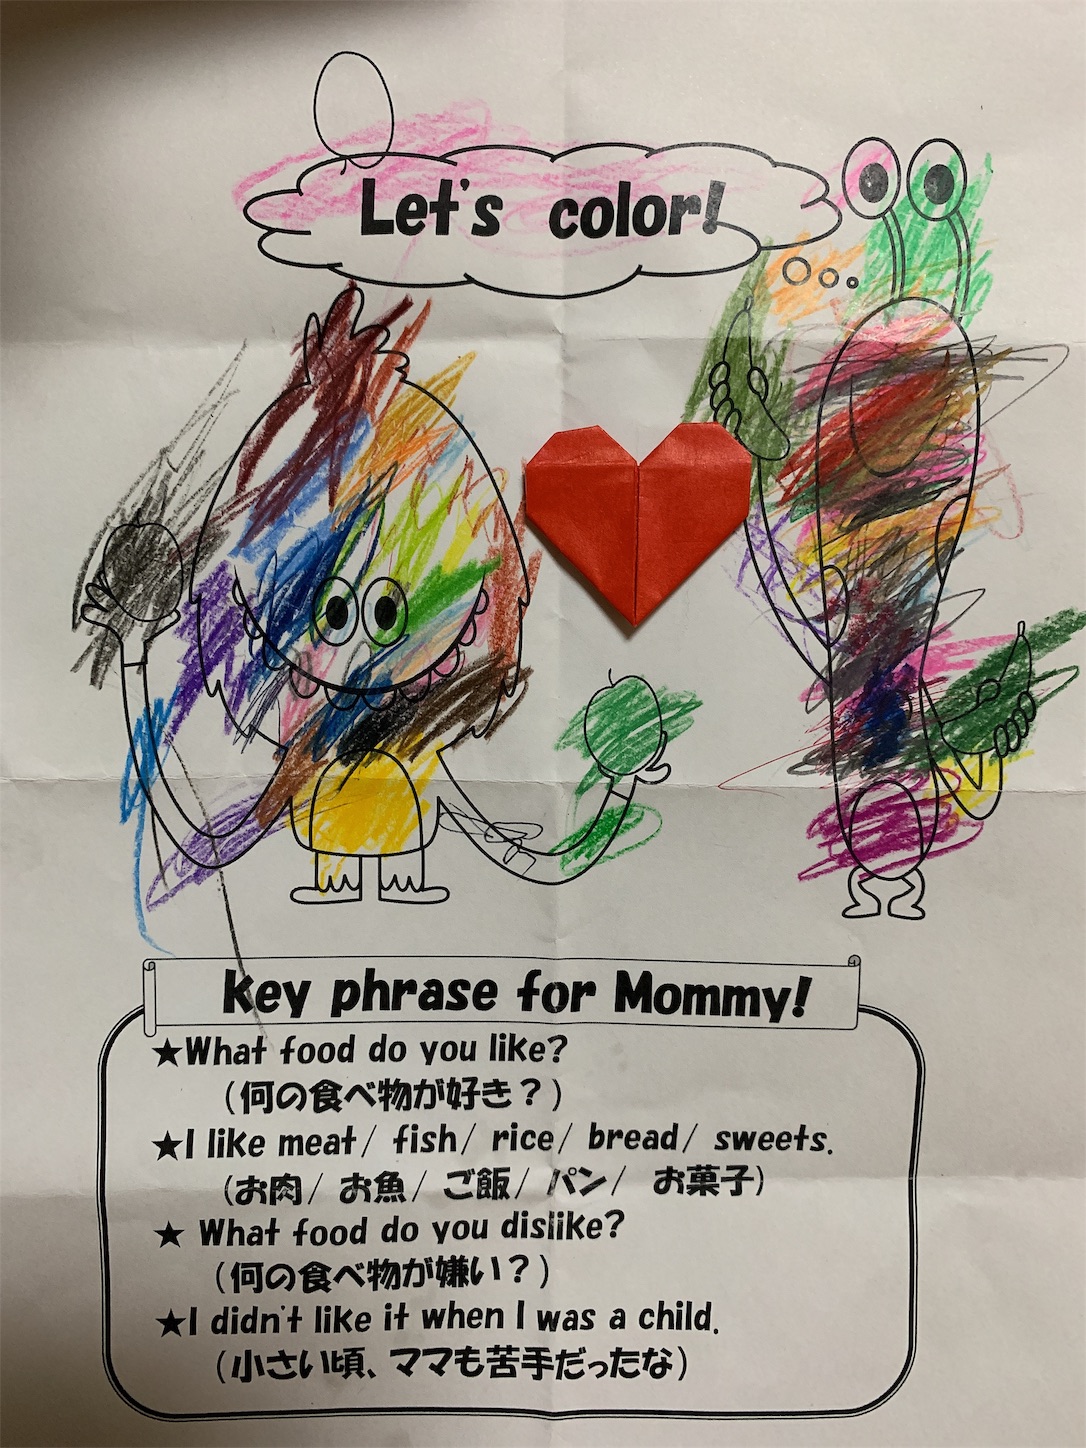 Let's color!
Key phrase for Mommy!
★What food do you like?
(何の食べ物が好き？)
★I like meat/ fish/ rice/ bread/ sweets.
(お肉/ お魚/ ご飯/ パン/ お菓子)
★ What food do you dislike?
(何の食べ物が嫌い？)
★I didn't like it when I was a child.
(小さい頃、ママも苦手だったな)